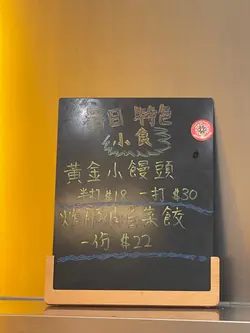 是日特色
小食
黃金小饅頭
半打 $18 一打 $30
炸鮮肉白菜餃
一份 $22